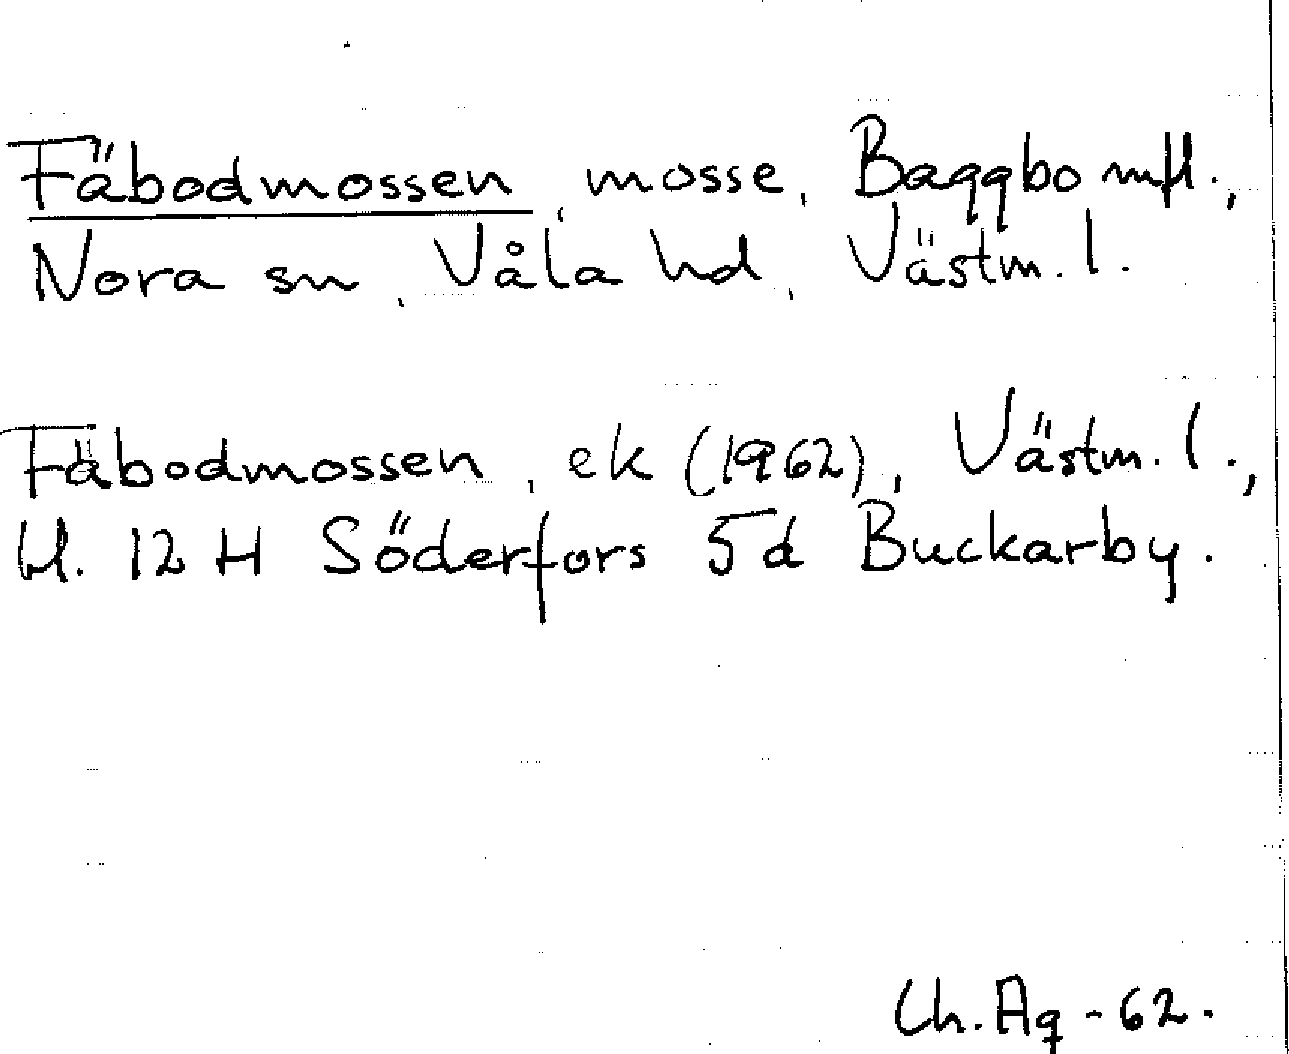 Fäbodmossen, mosse, Baggbo mfl.,
Nora sn, Våla hd, Västm. l.
Fäbodmossen, ek (1962), Västm. l.,
bl. 12 H Söderfors 5d Buckarby.
Ch. Ag - 62.